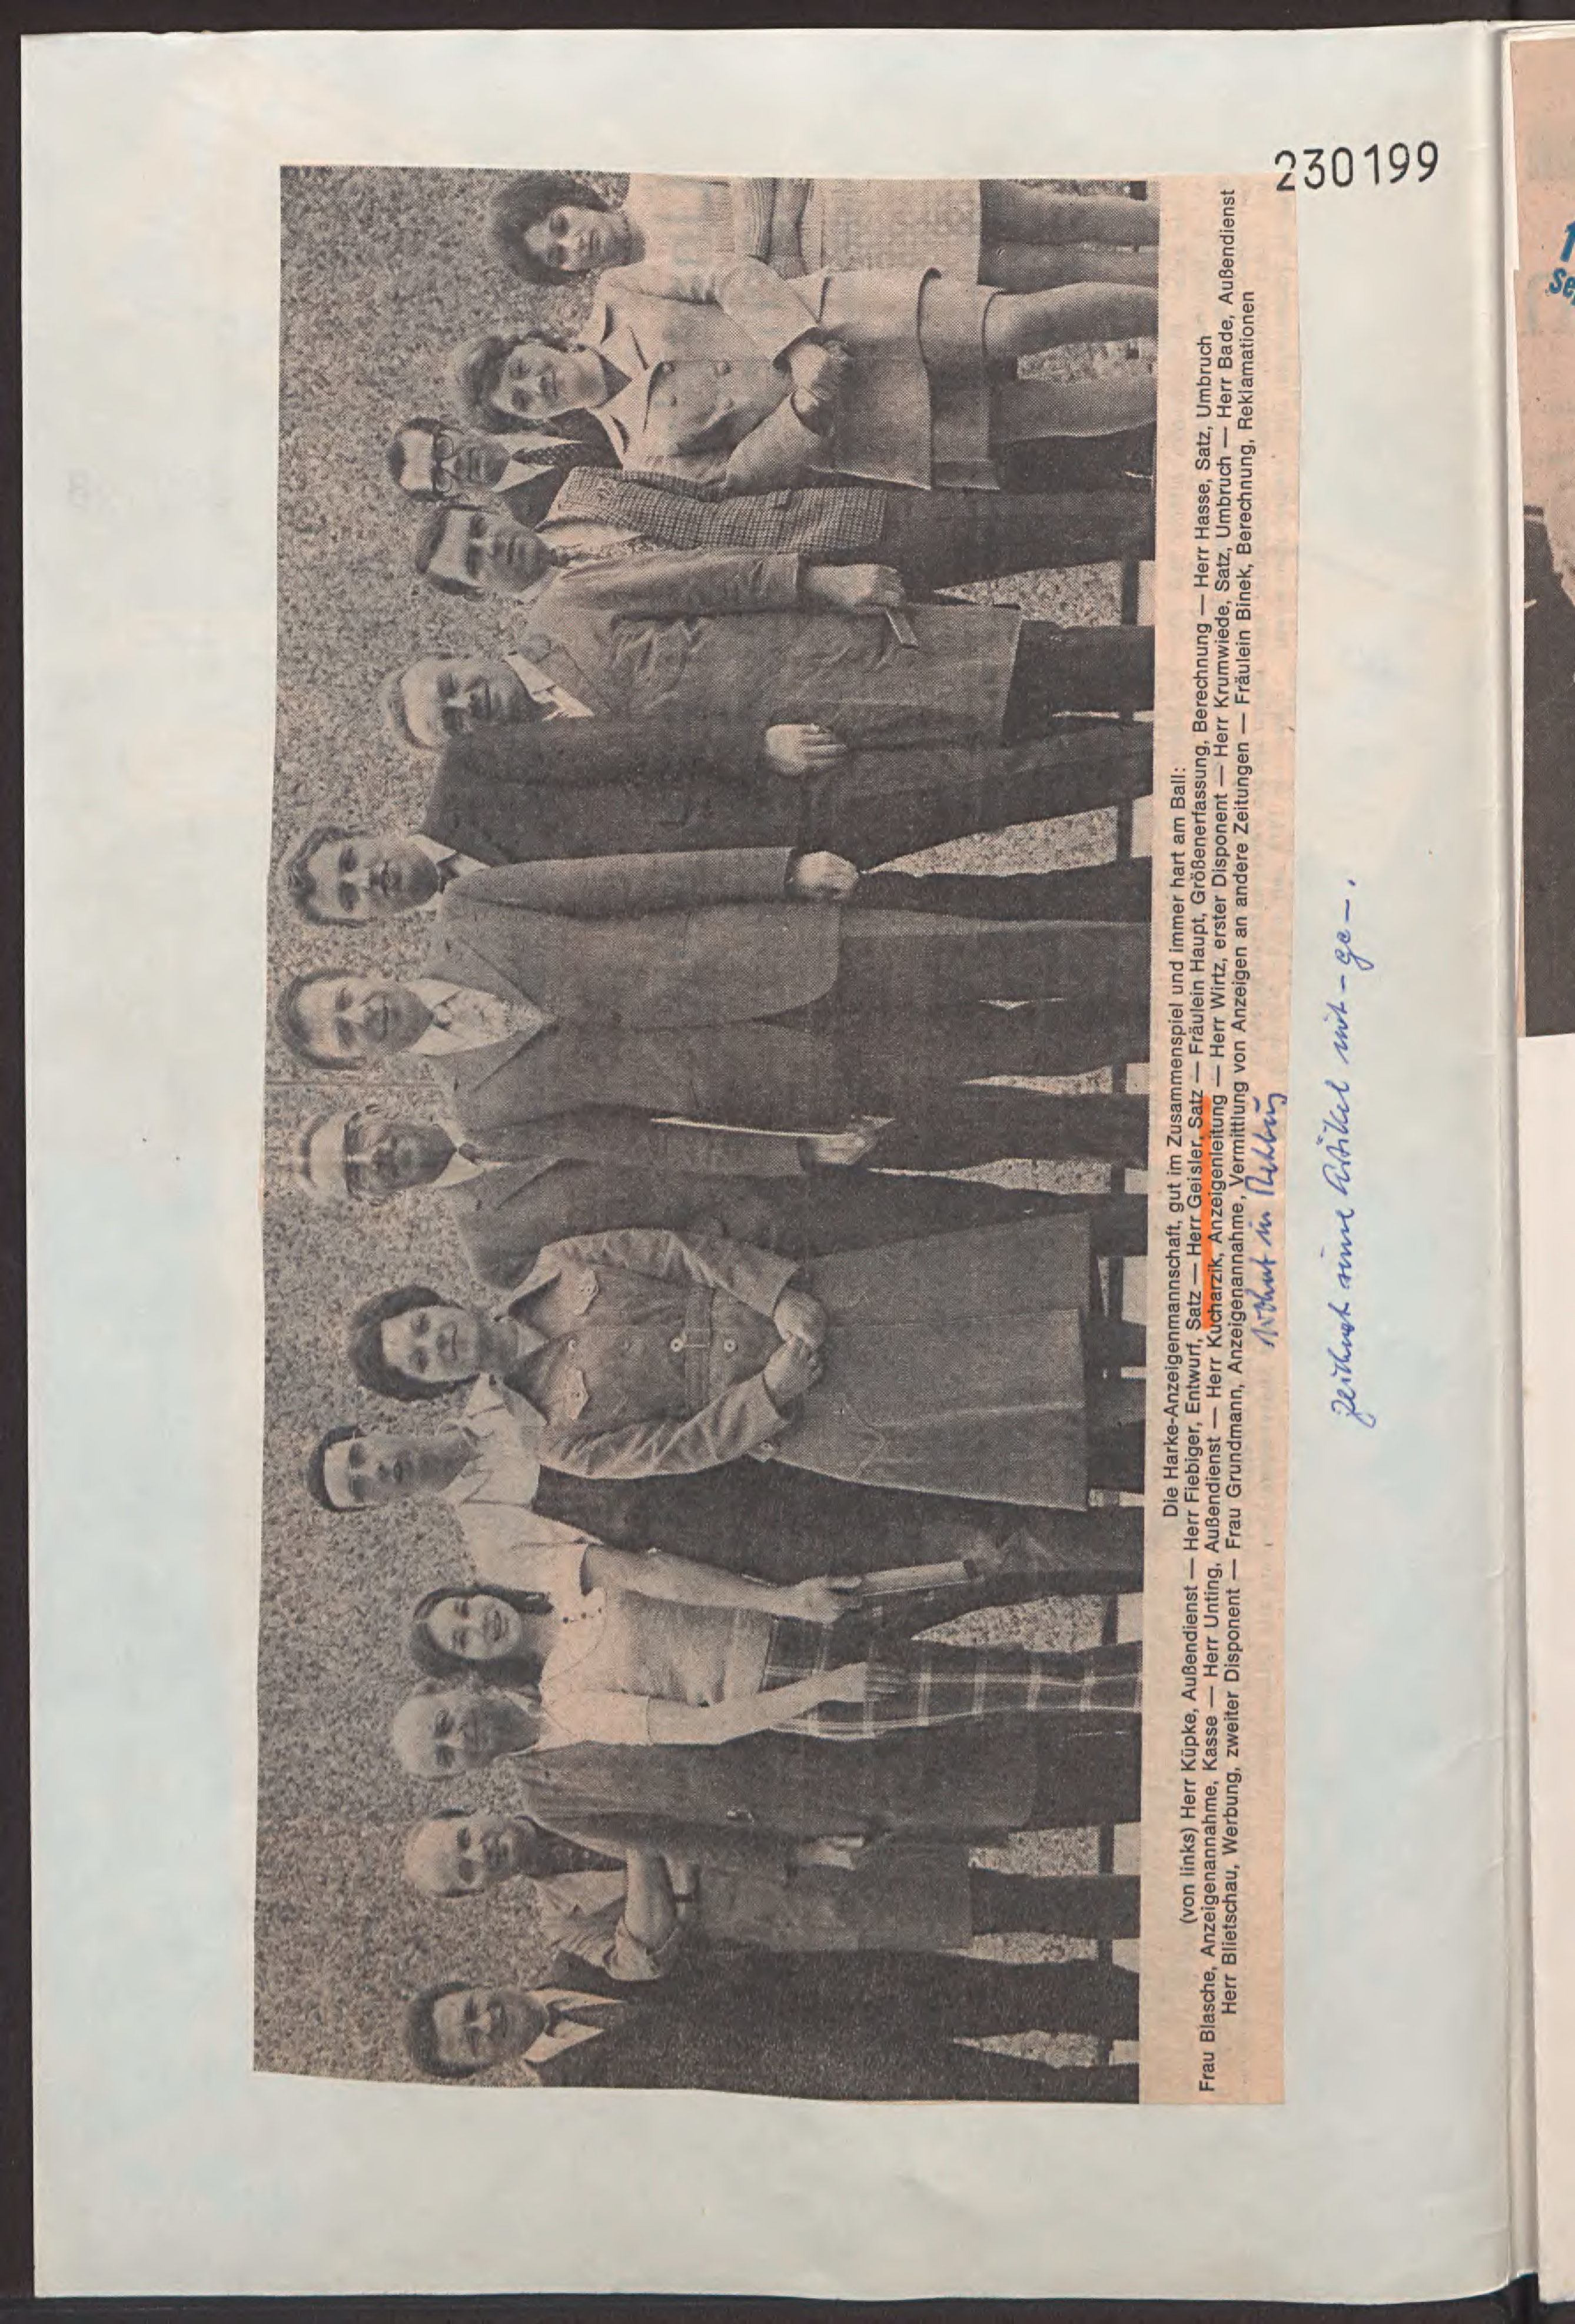 230199
Die Harke-Anzeigenmannschaft, gut im Zusammenspiel und immer hart am Ball:
(von links) Herr Küpke, Außendienst — Herr Fiebiger, Entwurf, Satz — Herr Geisler, Satz — Fräulein Haupt, Größenerfassung, Berechnung — Herr Hasse, Satz, Umbruch
Frau Blasche, Anzeigenannahme, Kasse — Herr Unting, Außendienst — Herr Kucharzik, Anzeigenleitung — Herr Wirtz, erster Disponent — Herr Krumwiede, Satz, Umbruch — Herr Bade, Außendienst
Herr Blietschau, Werbung, zweiter Disponent — Frau Grundmann, Anzeigenannahme, Vermittlung von Anzeigen an andere Zeitungen — Fräulein Binek, Berechnung, Reklamationen
wohnt in Rehburg
zeichnet seine Artikel mit - ge - .
1
Se